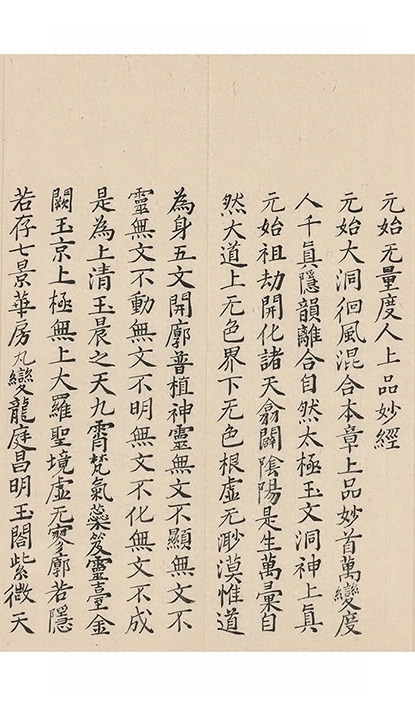 元始无量度人上品妙經
元始大洞徊風混合本章上品妙首萬變度
人千真隱韻離合自然太極玉文洞神上真
元始祖劫開化諸天翕闢陰陽是生萬彙自
然大道上无色界下无色根虛无渺漠惟道
為身五文開廓普植神靈無文不顯無文不
靈無文不動無文不明無文不化無文不成
是為上清玉晨之天九霄梵氣蘂笈靈臺金
闕玉京上極無上大羅聖境虛无寥廓若隱
若存七景華房九變龍庭昌明玉閣紫微天